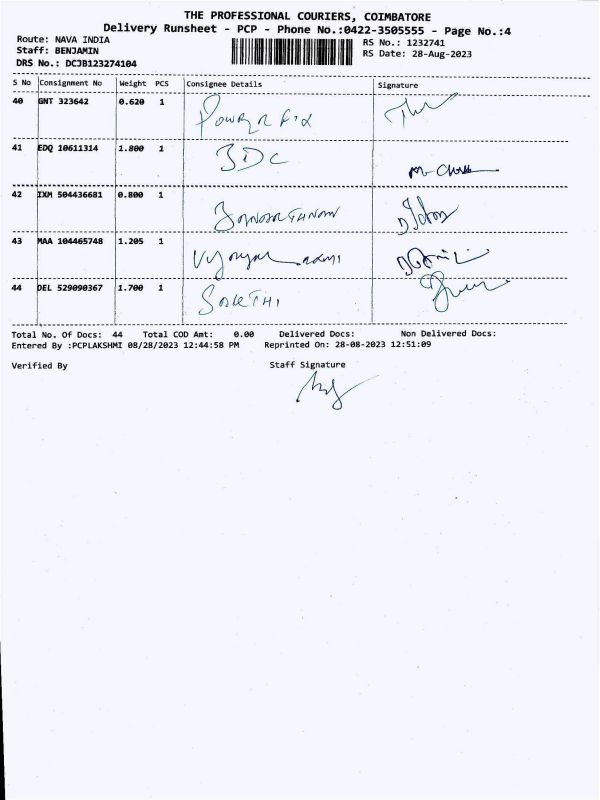 THE PROFESSIONAL COURIERS, COIMBATORE
Delivery Runsheet - PCP - Phone No.:0422-3505555 - Page No.:4
Route: NAVA INDIA
Staff: BENJAMIN
DRS No.: DCJB123274104
RS No.: 1232741
RS Date: 28-Aug-2023
S No Consignment No Weight PCS Consignee Details Signature
40 GNT 323642 0.620 1
41 EDQ 10611314 1.800 1 3DC
42 IXM 504436681 0.800 1
43 MAA 104465748 1.205 1
44 DEL 529090367 1.700 1
Total No. Of Docs: 44 Total COD Amt: 0.00 Delivered Docs: Non Delivered Docs:
Entered By :PCPLAKSHMI 08/28/2023 12:44:58 PM Reprinted On: 28-08-2023 12:51:09
Verified By Staff Signature